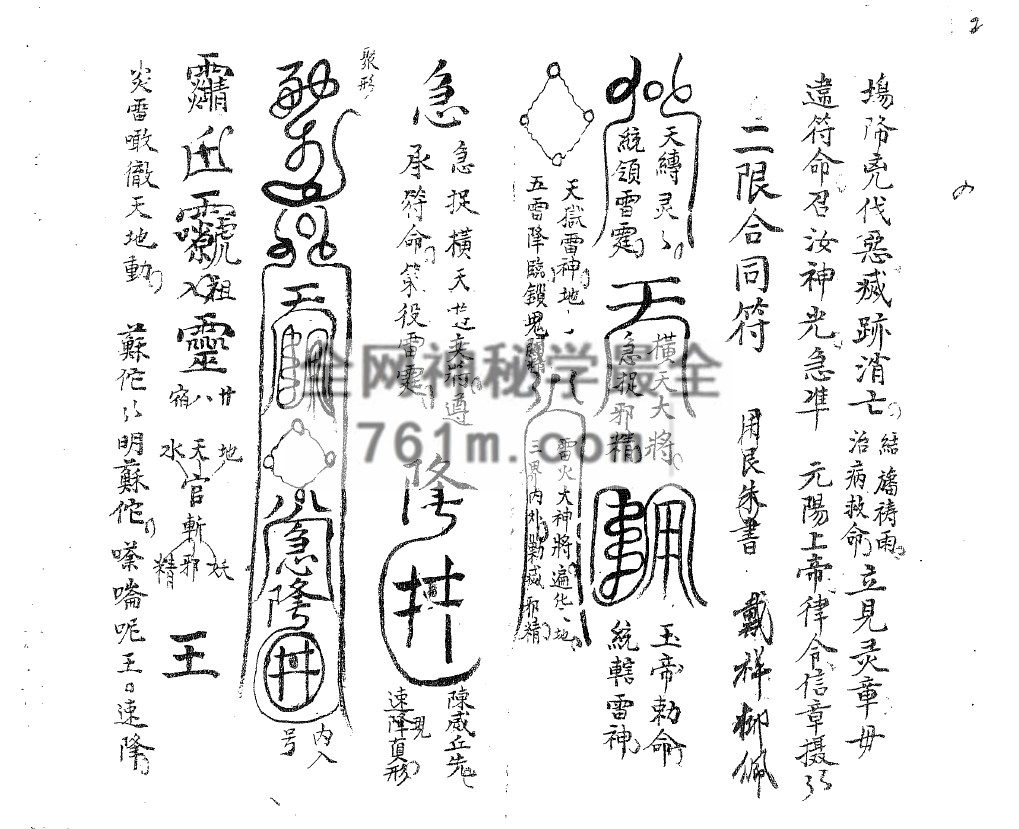 2
塲降兇伐惡滅跡消亡 結旛祷雨治病救命 立見灵章毋
違符命召汝神光急準 元陽上帝律令信章摄
二限合同符 用艮朱書 戴祥柳佩
天縛灵
統領雷霆
天
横天大將
急捉邪精
玉帝勅命
統轄雷神
天獄雷神地
五雷降臨鎖鬼
雷火大神將遍化地
三界内外
滅邪精
急
急捉橫天
承符命策役雷霆
隆
陳威丘先
速降真形
現
聚形
天
急隆
内入
号
祖
入
靈
廿八宿
地
天
水
官斬邪
妖
精
王
炎雷噉徹天地動 蘇佗明蘇佗 嗪喻呢王 速降
全网神秘学最全
761m.com